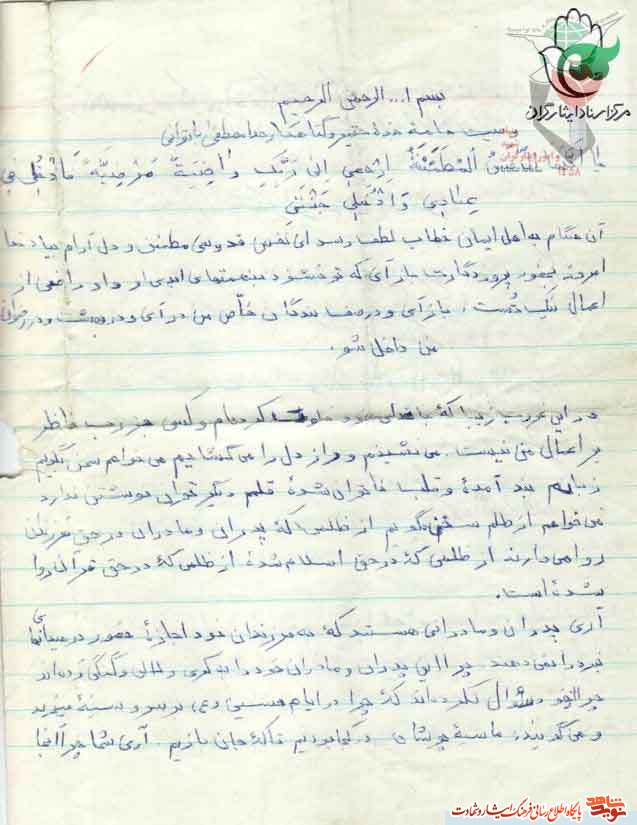 مرکز اسناد ایثارگران
بسم ا... الرحمن الرحیم
وصیت نامه بنده حقیر و گناهکار خدا مصطفی
النفس المطمئنة ارجعی الی ربک راضیة مرضیة فادخلی فی
عبادی وادخلی جنتی
آن هنگام به اهل ایمان خطاب لطف رسد ای نفس قدوسی مطمئن و دل آرام بیاد خدا
امروز بحضور پروردگارت باز آی که تو خشنود بنعمتهای ابدی او و او راضی از
اعمال نیک تست، باز آی و در صف بندگان خاص من در آی و در بهشت و در رضوان
من داخل شو.
در این غروب زیبا که با خدای خود خلوت کرده‌ام و کسی جز رب ناظر
بر اعمال من نیست. می نشینم و راز دل را می گشایم می خواهم سخن بگویم
زبانم بند آمده و قلب ناتوان شده قلم دیگر توان نوشتن ندارد
می خواهم از ظلم سخن گویم از ظلمی که پدران و مادران در حق فرزندان
روا می دارند از ظلمی که در حق اسلام شده از ظلمی که در حق قرآن روا
شده است.
آری پدران و مادرانی هستند که به فرزندان خود اجازه حضور در میدانهای
نبرد را نمی دهند. چرا این پدران و مادران خود را به کری و لالی و گنگی زده‌اند
چرا از خود سؤال نکرده‌اند که چرا در ایام حسینی (ع) بر سر و سینه میزنید
و می گویند، ما سیه پوشان در کجا بودیم تا که جان بازیم. آری شما چرا آنجا
نوید شاهد
پایگاه اطلاع رسانی فرهنگ ایثار و شهادت